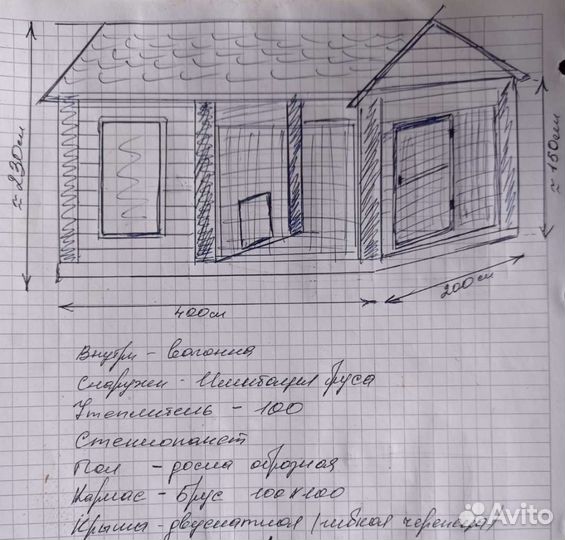 ≈ 230см
≈ 160см
400см
200см
Внутри - вагонка
Снаружи - Имитация бруса
Утеплитель - 100
Стеклопакет
Пол - доска обрезная
Каркас - Брус 100x100
Крыша - двускатная (гибкая черепица)
Avito